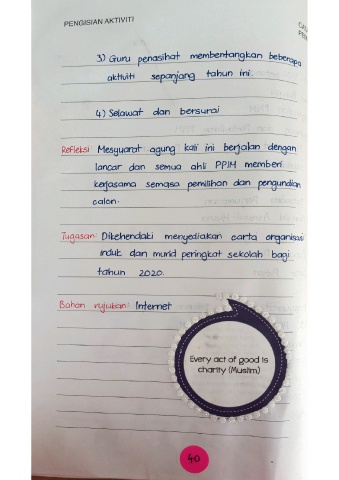 PENGISIAN AKTIVITI
3) Guru penasihat membentangkan beberapa
aktiviti sepanjang tahun ini.
4) Selawat dan bersurai
Refleksi: Mesyuarat agung kali ini berjalan dengan
lancar dan semua ahli PPIM memberi
kerjasama semasa pemilihan dan pengundian
calon.
Tugasan: Dikehendaki menyediakan carta organisasi
induk dan murid peringkat sekolah bagi
tahun 2020.
Bahan rujukan: Internet
Every act of good is
charity (Muslim)
40